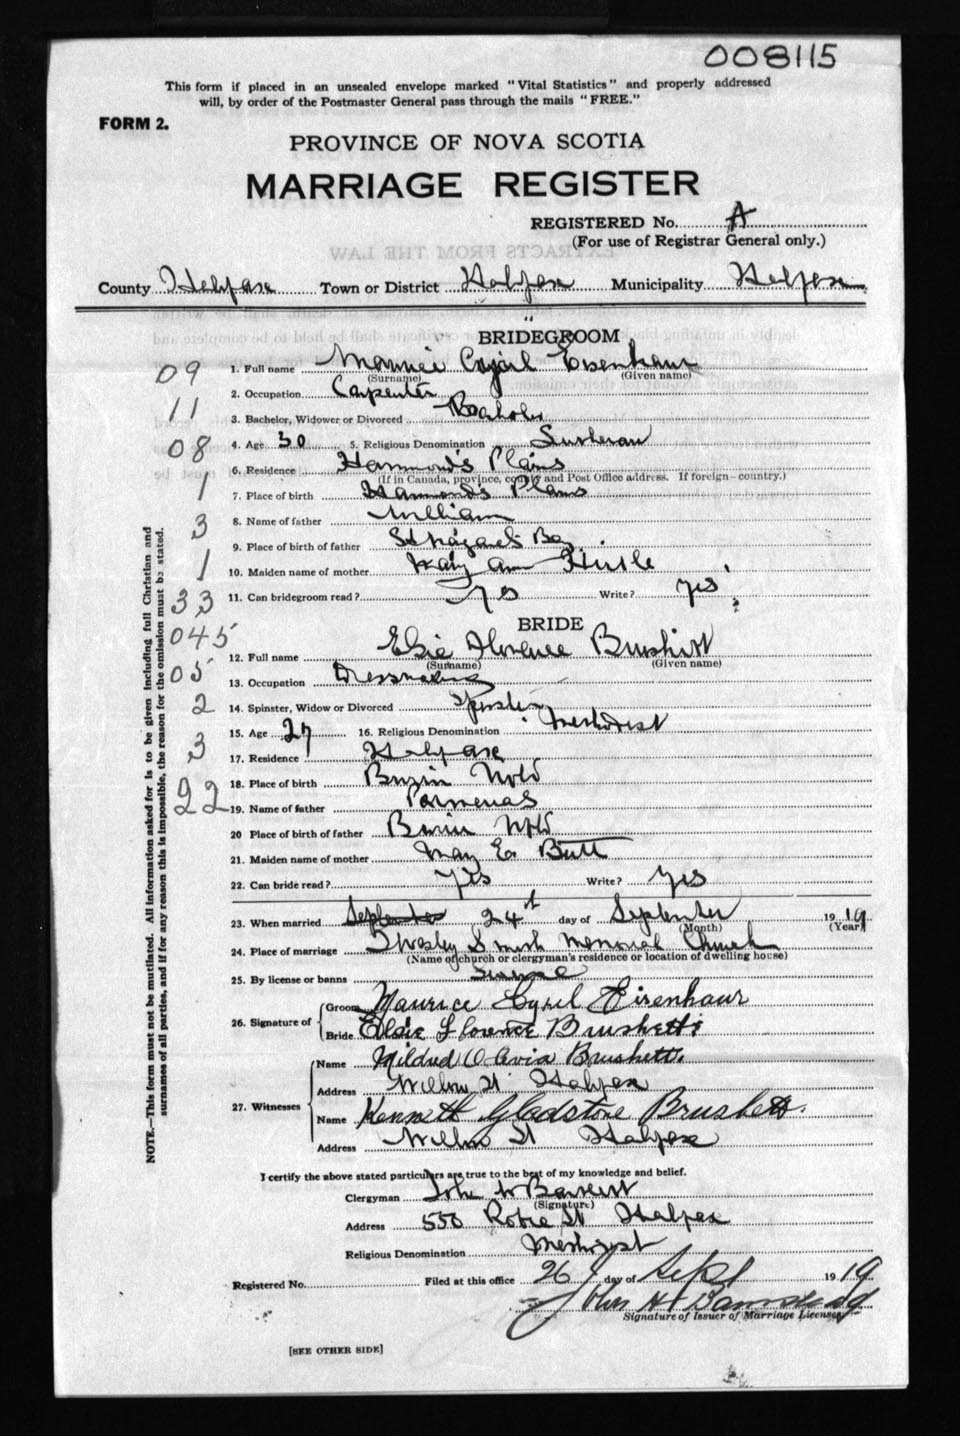 008115
This form if placed in an unsealed envelope marked "Vital Statistics" and properly addressed
will, by order of the Postmaster General pass through the mails "FREE."
FORM 2.
PROVINCE OF NOVA SCOTIA
MARRIAGE REGISTER
REGISTERED No. A
(For use of Registrar General only.)
County Halifax Town or District Halifax Municipality Halifax
BRIDEGROOM
09 1. Full name Maurice Cyril Eisenhaur
(Surname) (Given name)
2. Occupation Carpenter
11 3. Bachelor, Widower or Divorced Bachelor
08 4. Age 30 5. Religious Denomination Lutheran
6. Residence Hammond's Plains
(If in Canada, province, county and Post Office address. If foreign—country.)
1 7. Place of birth Hammond's Plains
3 8. Name of father William
9. Place of birth of father St Margarets Bay
1 10. Maiden name of mother Mary Ann
33 11. Can bridegroom read? Yes Write? Yes
BRIDE
045 12. Full name Elsie Florence Brushett
(Surname) (Given name)
05 13. Occupation Dressmaking
2 14. Spinster, Widow or Divorced Spinster
15. Age 27 16. Religious Denomination Methodist
3 17. Residence Halifax
18. Place of birth Burin Nfld
22 19. Name of father Parmenas
20 Place of birth of father Burin Nfld
21. Maiden name of mother May E. Butt
22. Can bride read? Yes Write? Yes
23. When married September 24st day of September 1919
(Month) (Year)
24. Place of marriage J Wesley Smith Memorial Church
(Name of church or clergyman's residence or location of dwelling house)
25. By license or banns License
26. Signature of Groom Maurice Cyril Eisenhaur
Bride Elsie Florence Brushett
27. Witnesses Name Mildred Olivia Brushett.
Address Willow St Halifax
Name Kenneth Gladstone Brushett.
Address Willow St Halifax
I certify the above stated particulars are true to the best of my knowledge and belief.
Clergyman John W
(Signature)
Address 550 Robie St Halifax
Religious Denomination Methodist
Registered No. Filed at this office 26 day of Sept 1919
John H
Signature of Issuer of Marriage Licenses
[SEE OTHER SIDE]
NOTE.—This form must not be mutilated. All information asked for is to be given including full Christian and
surnames of all parties, and if for any reason this is impossible, the reason for the omission must be stated.
EXTRACTS FROM THE LAW